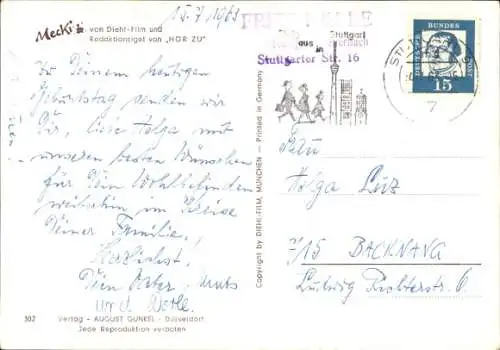 Mecki von Diehl-Film und
Redaktionsigel von „HÖR ZU"
15.7.1963
Zu Deinem heutigen
Geburtstag senden wir
Dir, liebe Helga mit
unseren besten Wünschen
für Dein Wohlbefinden
weiterhin im Kreise
Deiner Familie.
Herzlichst,
Dein Vater,
und
302
Verlag - AUGUST GUNKEL - Düsseldorf
Jede Reproduktion verboten
Copyright by DIEHL-FILM, MÜNCHEN — Printed in Germany
FRITZ
Stuttgart
aus
in
Stuttgarter Str. 16
DEUTSCHE BUNDESPOST
15
7
Frau
Helga Luz
715 BACKNANG
Ludwig Richterstr. 6